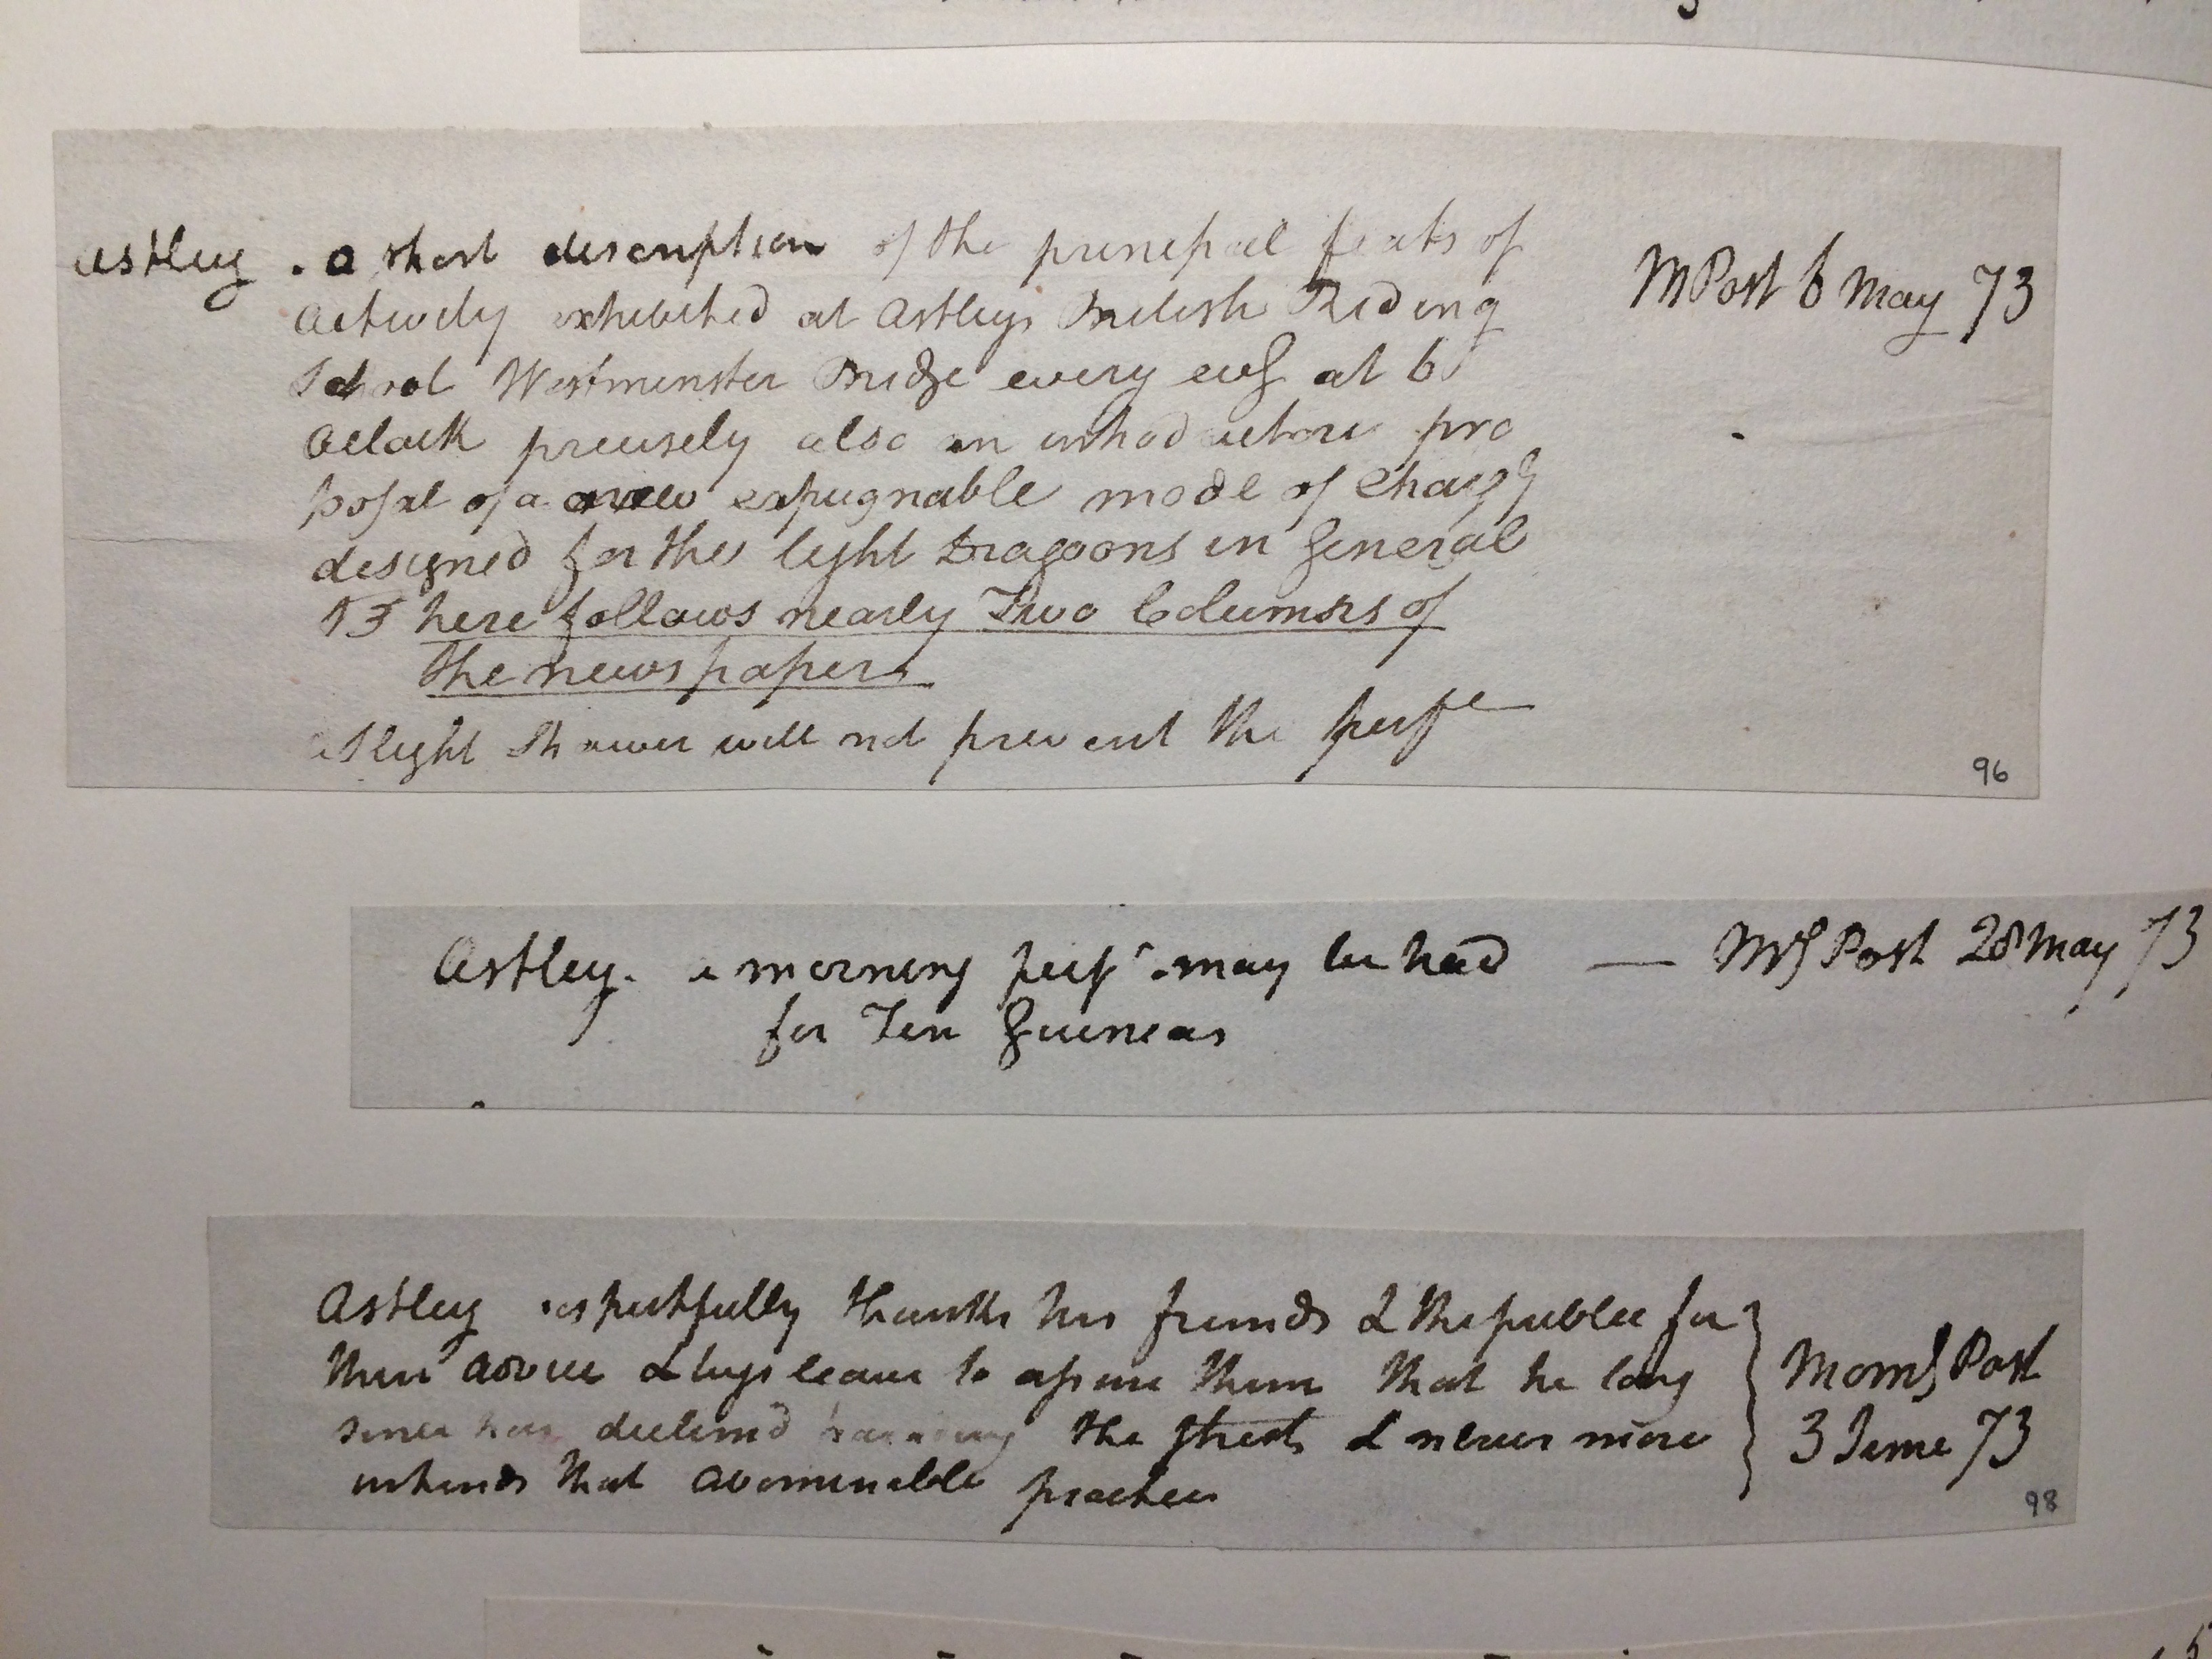 Astley . a short description of the principal feats of
Activity exhibited at Astleys British Riding
School Westminster Bridge every evg at 6
Oclock precisely also an introductory pro
posal of a new expugnable mode of Chargg
designed for the light Dragoons in General
here follows nearly Two Columns of
the newspaper
a Slight Shower will not prevent the perfe
MPost 6 May 73
96
Astley. a morning perfe may be had — Mg Post 28 May 73
for Ten Guineas
Astley respectfully thanks his friends & the public for
their advice & begs leave to assure them that he long
since has declined the streets & never more
intends that abominable practice
Morng Post
3 June 73
98